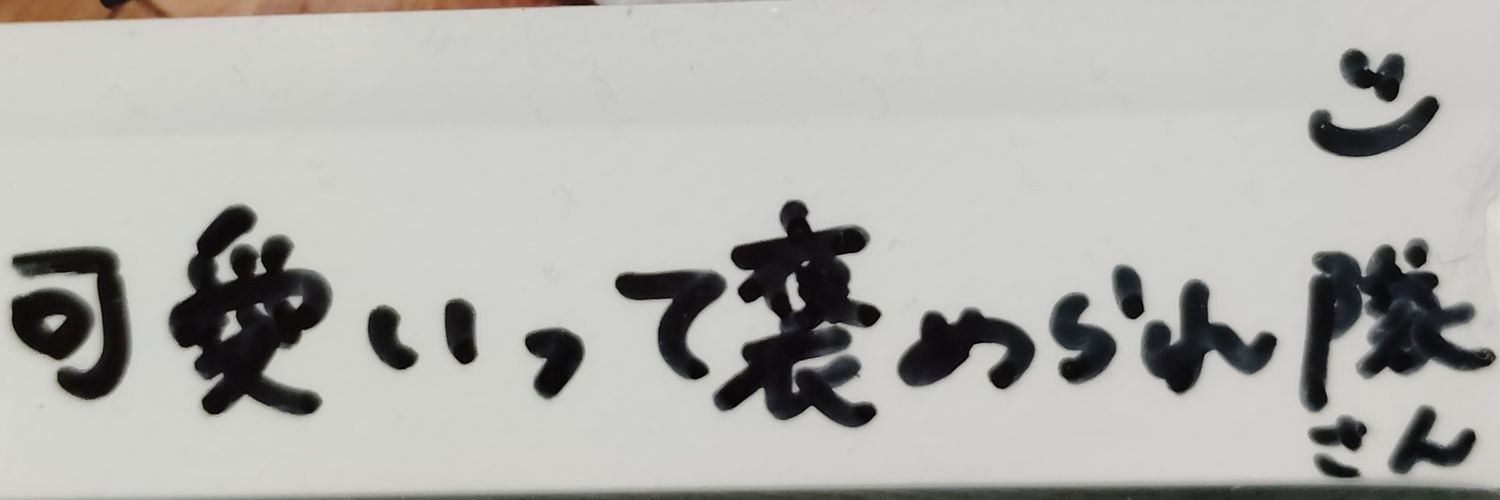 可愛いって褒められ隊
さん